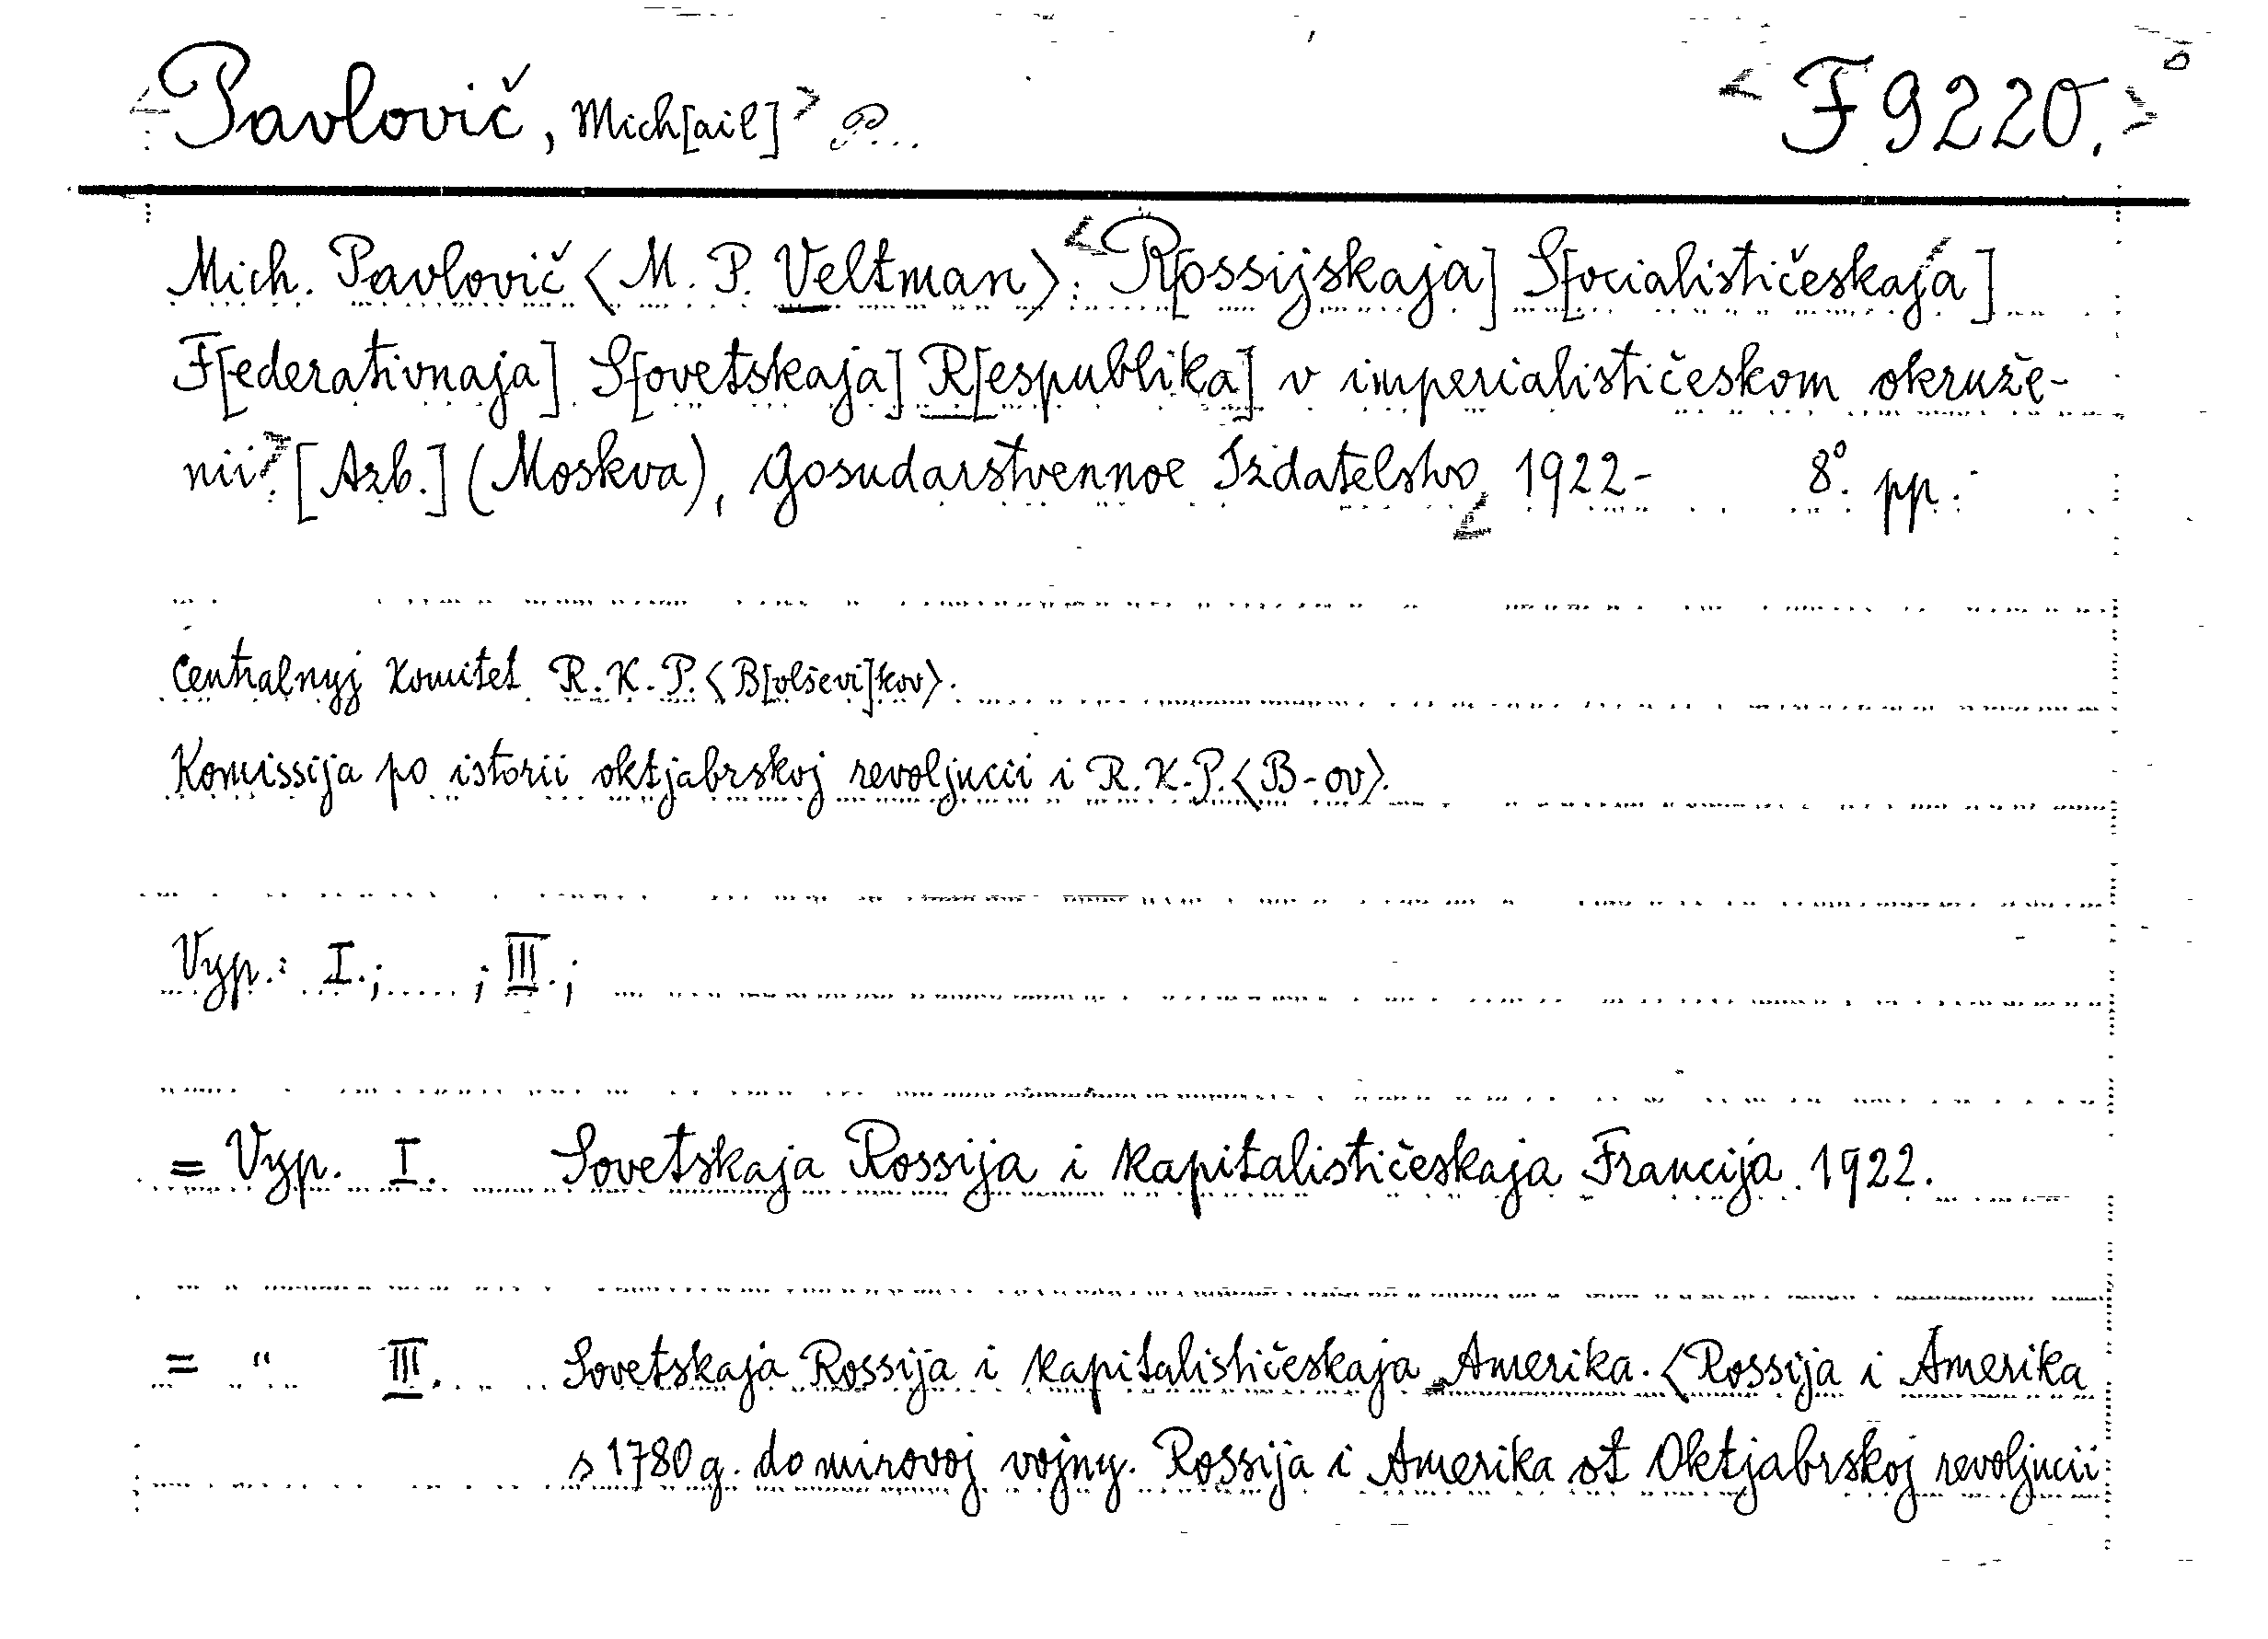 <Pavlovič, Mich[ail]> P...
<F 9220.>
Mich. Pavlovič <M. P. Veltman>: <R[ossijskaja] S[ocialističeskaja]
F[ederativnaja] S[ovetskaja] R[espublika] v imperialističeskom okruže-
nii>. [Azb.] (Moskva), Gosudarstvennoe Izdatelstvo, 1922- 8°. pp.
Centralnyj Komitet R. K. P. <B[olševi]kov>.
Komissija po istorii oktjabrskoj revoljucii i R. K. P. <B-ov>.
Vyp.: I.; ; III.;
= Vyp. I. Sovetskaja Rossija i kapitalističeskaja Francija. 1922.
= " III. Sovetskaja Rossija i kapitalističeskaja Amerika. <Rossija i Amerika
s 1780 g. do mirovoj vojny. Rossija i Amerika ot Oktjabrskoj revoljucii